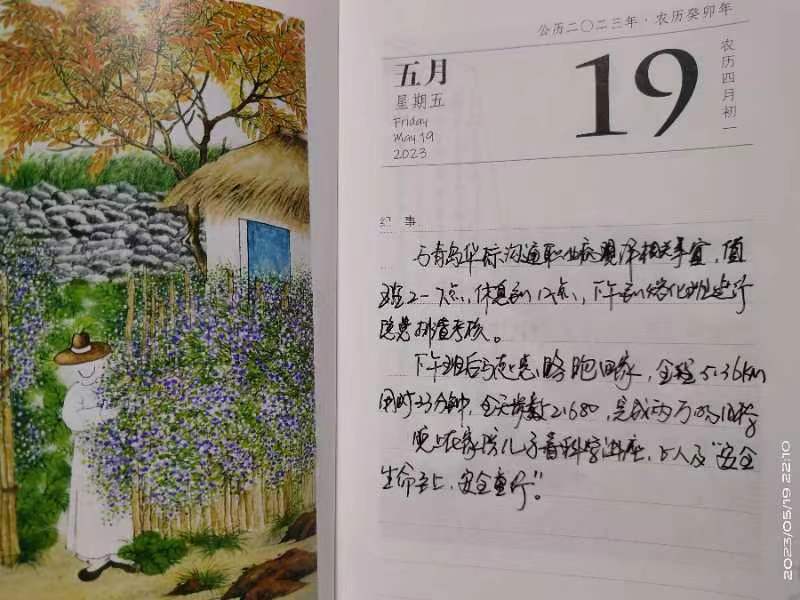 公历二〇二三年·农历癸卯年
五月
星期五
Friday
May 19
2023
19
农历四月初一
纪 事
与青岛华标沟通职业病现评相关事宜，值
班2-7点，休息到12点，下午到熔化班进行
隐患排查考核。
下午班后与志亮路跑回家，全程5.36km
用时33分钟，全天步数21680，完成两万的目标
晚上在家陪儿子看科学讲座，与人及"安全
生命至上，安全重行"。
2023/05/19 22:10